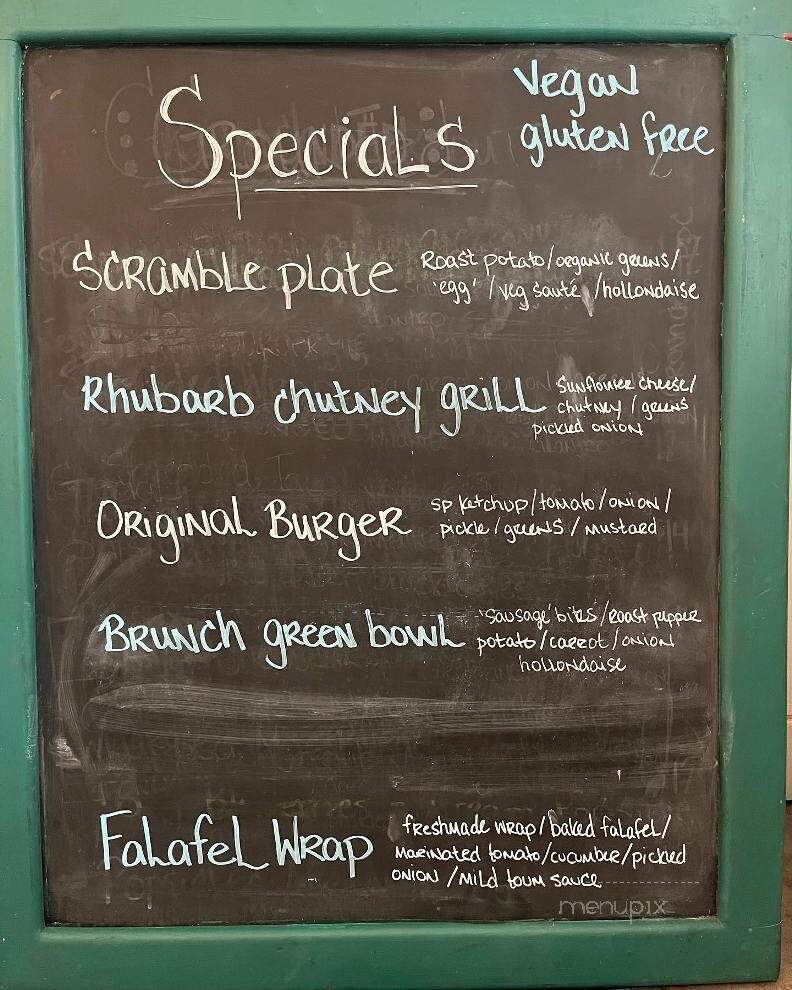 Specials
Vegan
gluten free
Scramble plate
Roast potato/organic greens/
'egg' /veg sauté /hollondaise
Rhubarb chutney grill
Sunflower cheese/
chutney / greens
pickled onion
Original Burger
sp ketchup/tomato/onion/
pickle / greens / mustard
Brunch green bowl
'sausage' bits /roast pepper
potato/carrot/onion
hollondaise
Falafel Wrap
freshmade wrap/baked falafel/
marinated tomato/cucumber/pickled
onion /mild toum sauce
menupix